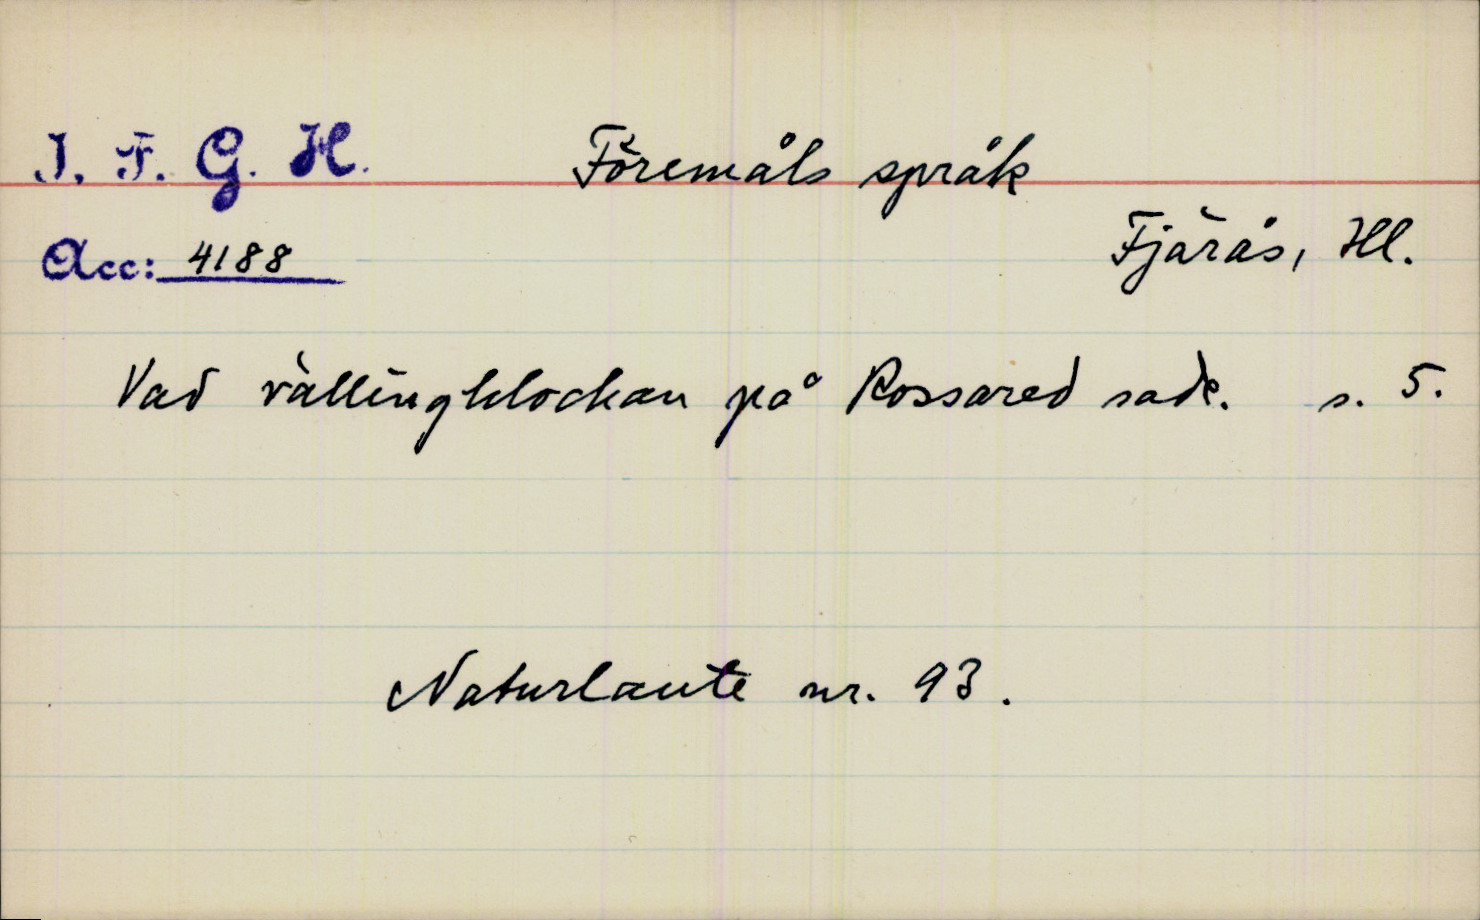 I. F. G. H. Föremåls språk
Acc: 4188 Fjärås, Hl.
Vad vällingklockan på Rossared sade. s. 5.
Naturlaute nr. 93.